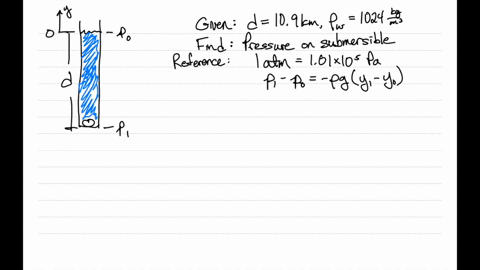 y
0
p₀
d
p₁
Given: d = 10.9 km, ρw = 1024 kg/m³
Find: Pressure on submersible
Reference: 1 atm = 1.01×10⁵ Pa
p₁ - p₀ = -ρg(y₁ - y₀)